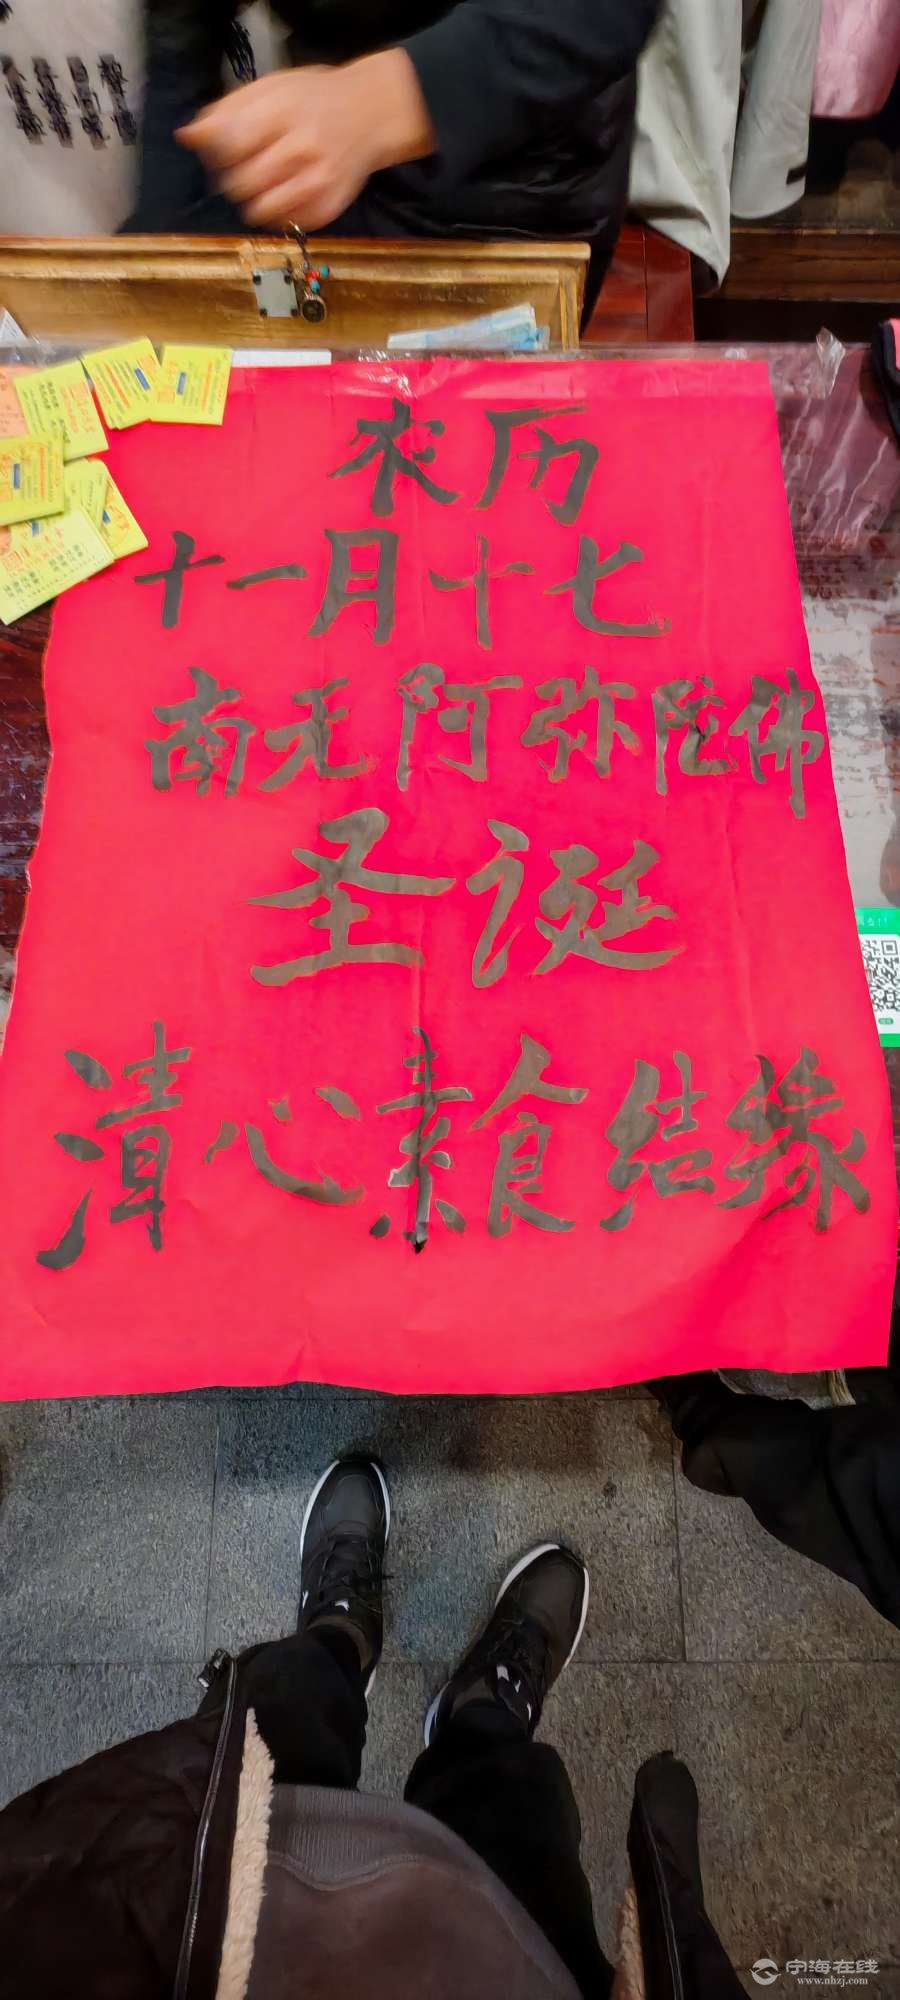 农历
十一月十七
南无阿弥陀佛
圣诞
清心素食结缘
宁海在线
www.nhzj.com